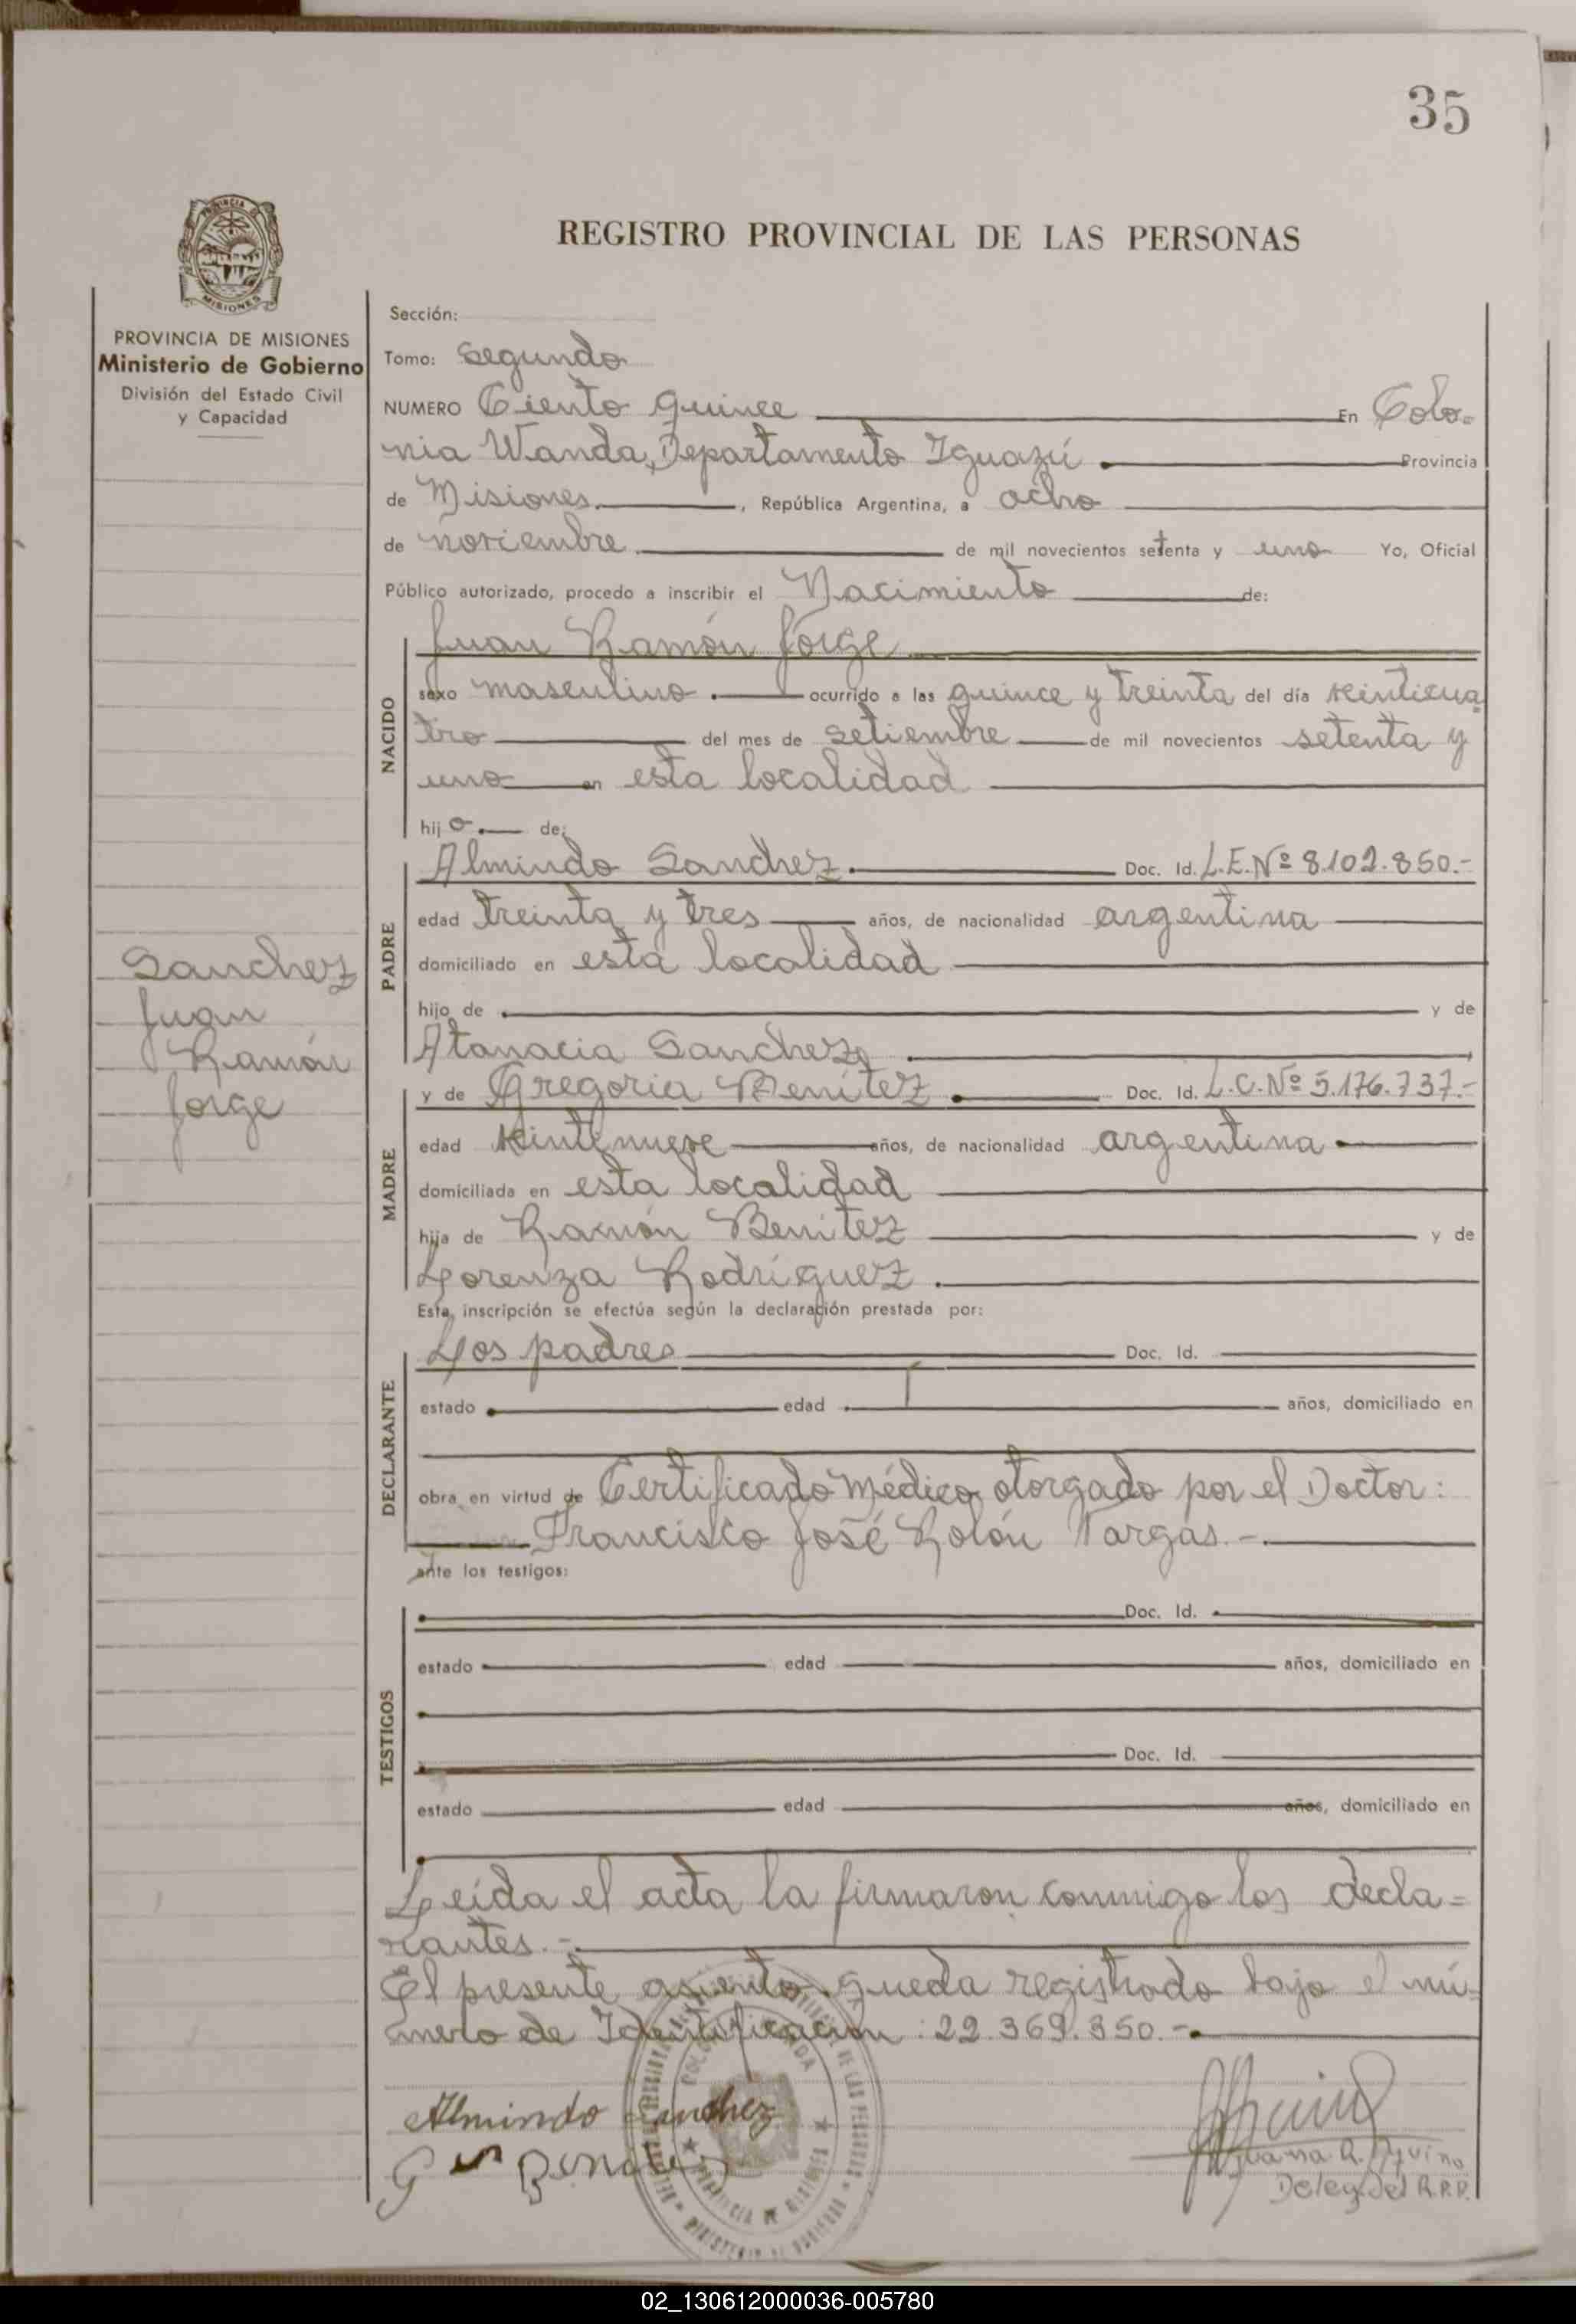 35
REGISTRO PROVINCIAL DE LAS PERSONAS
PROVINCIA DE MISIONES
Ministerio de Gobierno
División del Estado Civil
y Capacidad
Sanchez
Juan
Ramón
Jorge
Sección:
Tomo: Segundo
NUMERO Ciento quince En Colo=
nia Wanda, Departamento Iguazú Provincia
de Misiones, República Argentina, a ocho
de noviembre de mil novecientos setenta y uno Yo, Oficial
Público autorizado, procedo a inscribir el Nacimiento de:
Juan Ramón Jorge
NACIDO
sexo masculino ocurrido a las quince y treinta del día vinticua=
tro del mes de setiembre de mil novecientos setenta y
uno en esta localidad
hijo de:
PADRE
Almindo Sanchez. Doc. Id. L.E.Nº 8.102.850.-
edad treinta y tres años, de nacionalidad argentina
domiciliado en esta localidad
hijo de y de
Atanacia Sanchez
MADRE
y de Gregoria Benitez. Doc. Id. L.C.Nº 5.176.737.-
edad vintenueve años, de nacionalidad argentina
domiciliada en esta localidad
hija de Ramón Benitez y de
Lorenza Rodríguez.
Esta inscripción se efectúa según la declaración prestada por:
DECLARANTE
Los padres Doc. Id.
estado edad años, domiciliado en
obra en virtud de Certificado Médico otorgado por el Doctor:
Francisco José Rolón Vargas.-
ante los testigos:
TESTIGOS
Doc. Id.
estado edad años, domiciliado en
Doc. Id.
estado edad años, domiciliado en
Leída el acta la firmaron conmigo los decla=
rantes.-
El presente asiento queda registrado bajo el nú=
mero de Identificación: 22.369.350.-
Almindo Sanchez
Juana R. Aquino
Deleg. del R.P.P.
02_130612000036-005780